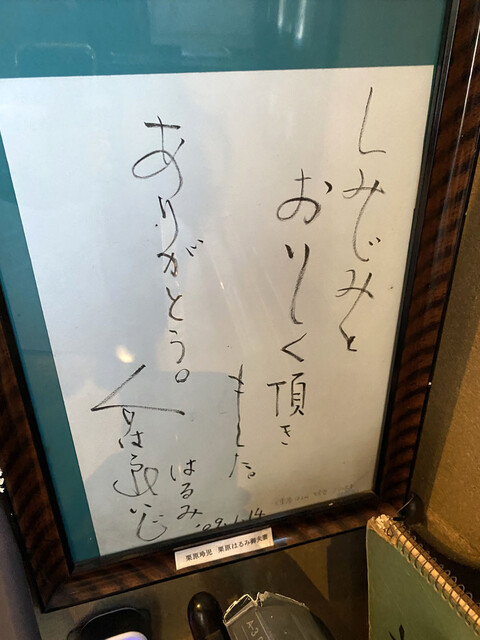 しみじみと
おいしく頂き
ました
ありがとう。
はるみ
栗原玲児　栗原はるみ御夫妻